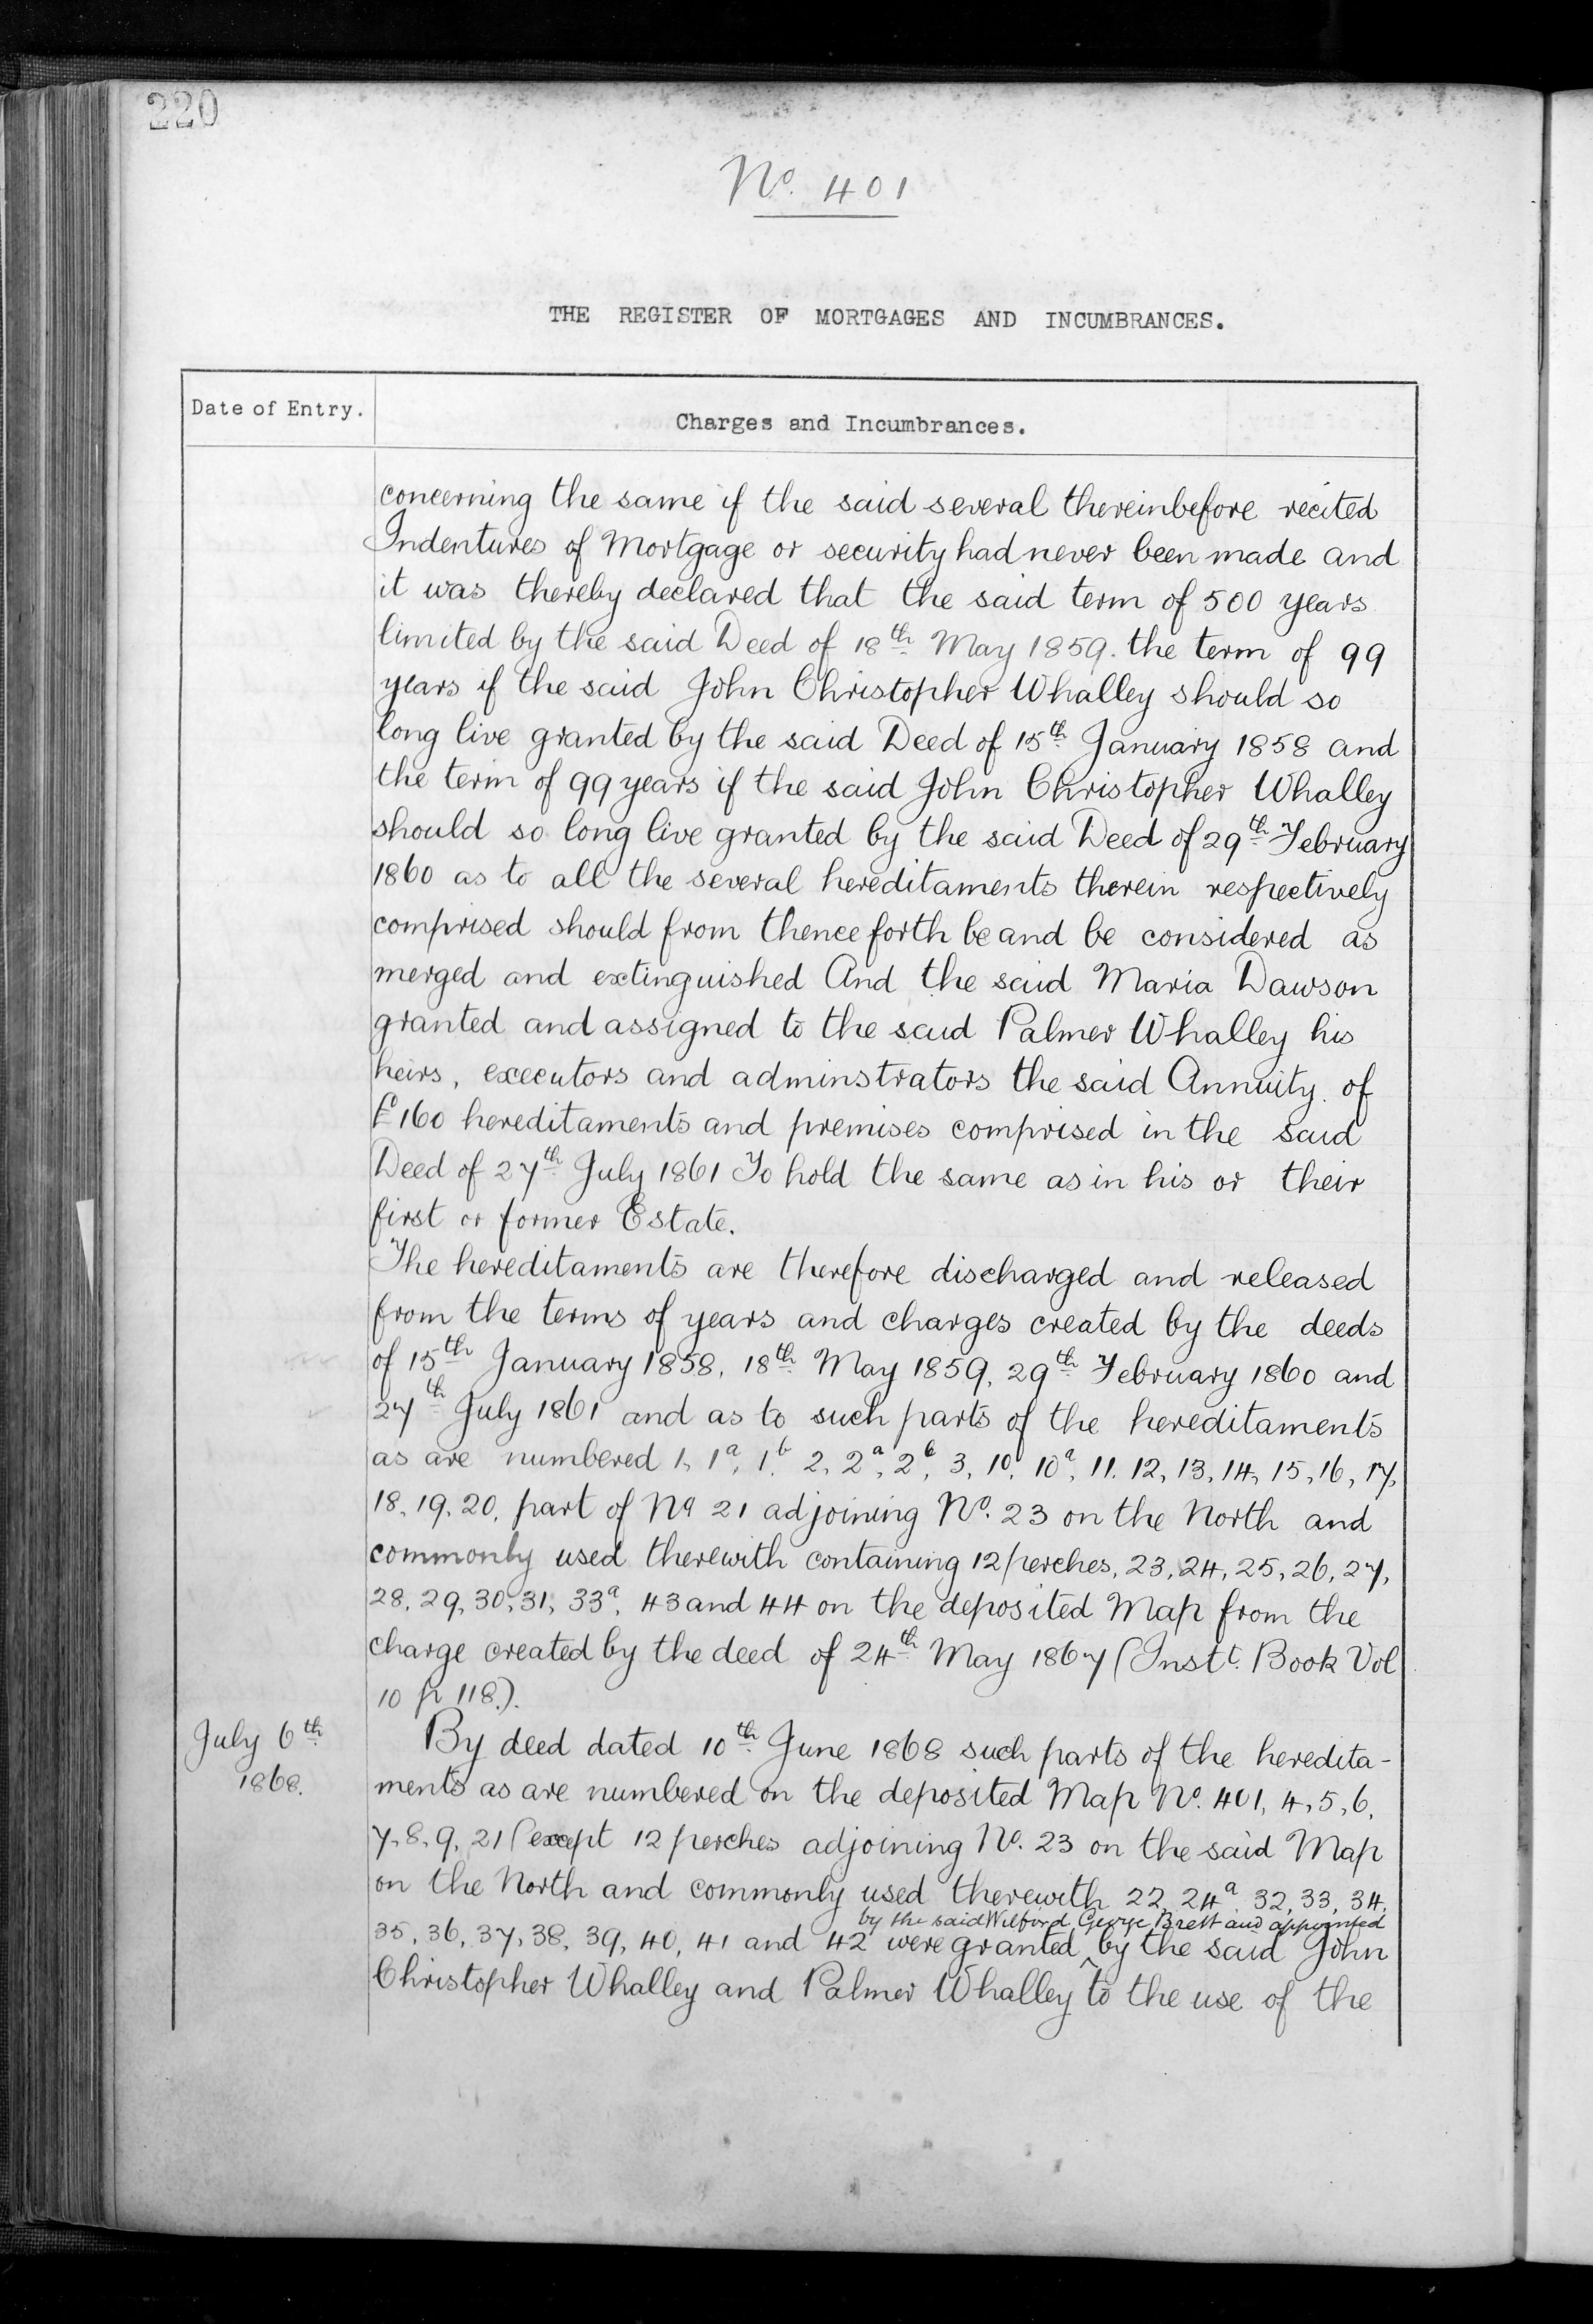 220
No. 401
THE REGISTER OF MORTGAGES AND INCUMBRANCES.
Date of Entry.
Charges and Incumbrances.
concerning the same if the said several thereinbefore recited
Indentures of Mortgage or security had never been made and
it was thereby declared that the said term of 500 years
limited by the said Deed of 18th May 1859. the term of 99
years if the said John Christopher Whalley should so
long live granted by the said Deed of 15th January 1858 and
the term of 99 years if the said John Christopher Whalley
should so long live granted by the said Deed of 29th February
1860 as to all the several hereditaments therein respectively
comprised should from thenceforth be and be considered as
merged and extinguished And the said Maria Dawson
granted and assigned to the said Palmer Whalley his
heirs, executors and adminstrators the said Annuity of
£160 hereditaments and premises comprised in the said
Deed of 27th July 1861 To hold the same as in his or their
first or former Estate.
The hereditaments are therefore discharged and released
from the terms of years and charges created by the deeds
of 15th January 1858, 18th May 1859, 29th February 1860 and
27th July 1861 and as to such parts of the hereditaments
as are numbered 1, 1a, 1b, 2, 2a, 2b, 3, 10, 10a, 11, 12, 13, 14, 15, 16, 17,
18, 19, 20, part of No 21 adjoining No. 23 on the North and
commonly used therewith containing 12 perches, 23, 24, 25, 26, 27,
28, 29, 30, 31, 33a, 43 and 44 on the deposited Map from the
charge created by the deed of 24th May 1867 (Instt. Book Vol
10 p 118.).
July 6th
1868.
By deed dated 10th June 1868 such parts of the heredita-
ments as are numbered on the deposited Map No. 401, 4, 5, 6,
7, 8, 9, 21 (except 12 perches adjoining No. 23 on the said Map
on the North and commonly used therewith 22, 24a, 32, 33, 34,
by the said Wilford George Brett and appointed
35, 36, 37, 38, 39, 40, 41 and 42 were granted ^ by the said John
Christopher Whalley and Palmer Whalley to the use of the